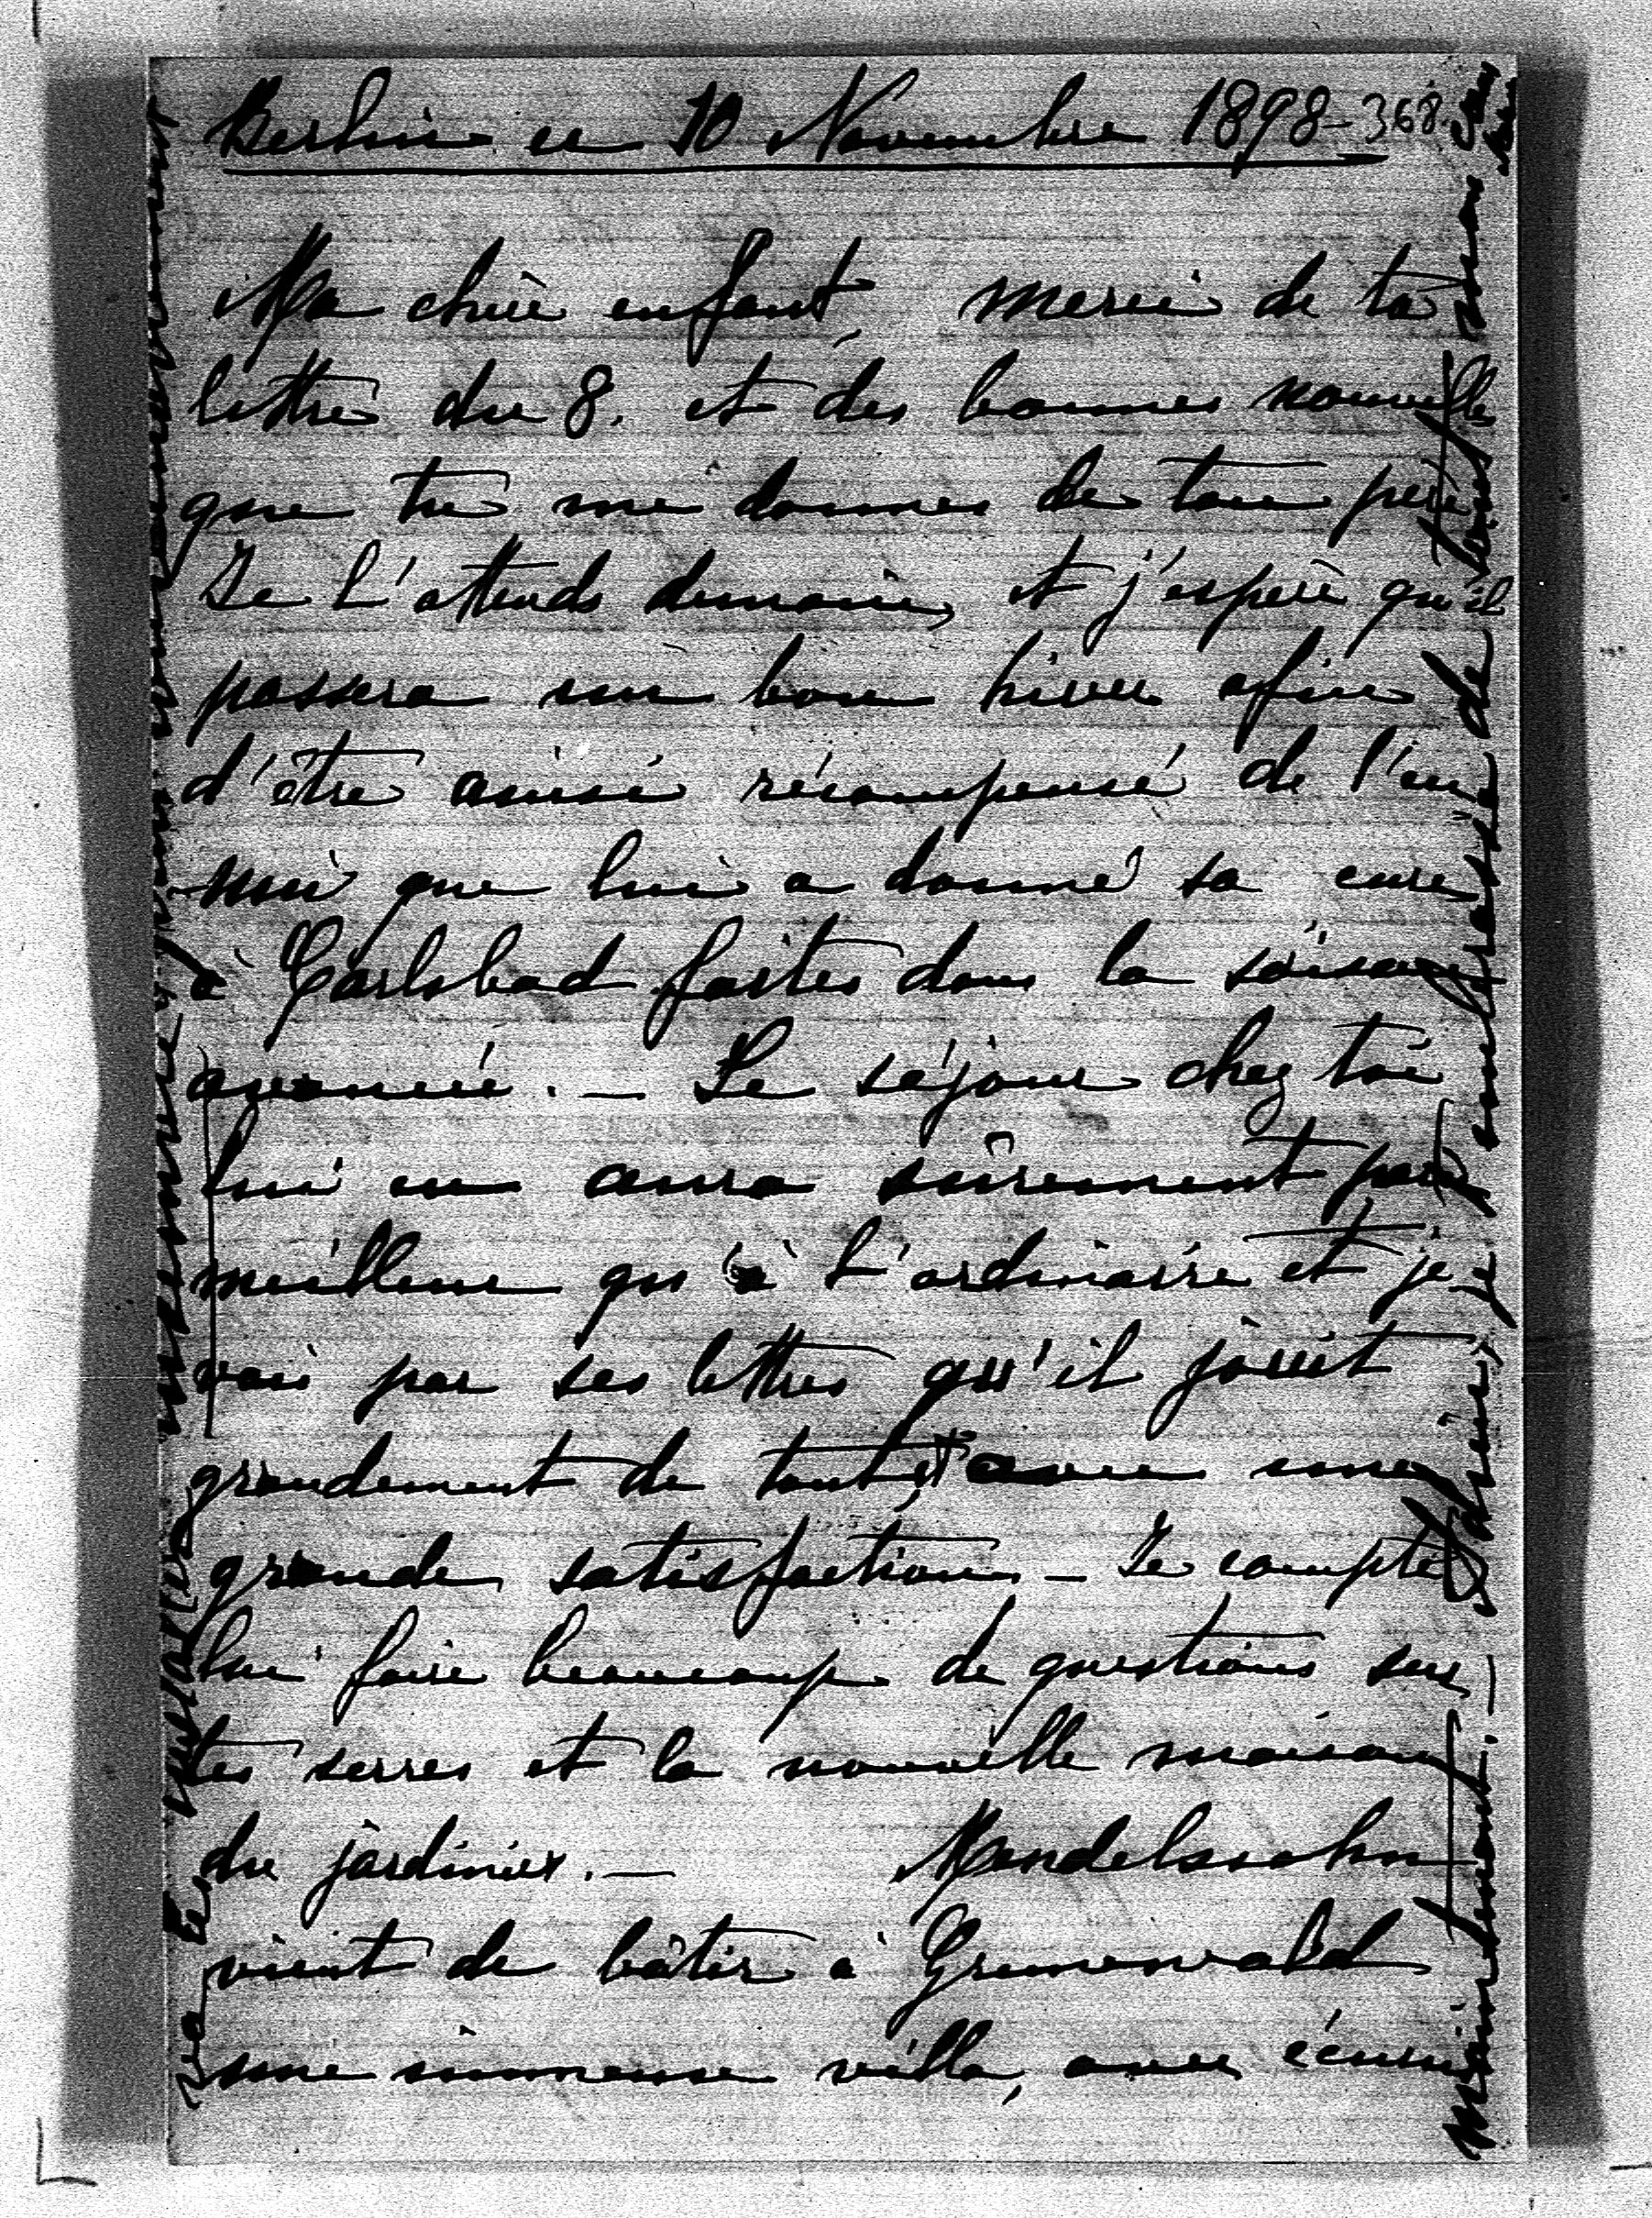 Berlin ce 10 Novembre 1898 - 368.
Ma chère enfant, merci de ta
lettre du 8. et des bonnes nouvelles
que tu me donnes de ton père
Je l'attends demain, et j'espère qu'il
passera un bon hiver afin
d'être ainsi récompensé de l'en
nui que lui a donné sa cure
à Carlsbad faites dans la saison
avancée. — Le séjour chez toi
lui en aura sûrement paru
meilleur qu'à l'ordinaire et je
vois par ses lettres qu'il jouit
grandement de tout, et avec une
grande satisfaction — Je compte
lui faire beaucoup de questions sur
tes serres et la nouvelle maison
du jardinier. — Mendelssohn
vient de bâtir à Grunewald
une immense villa, avec écurie
maintenant. — Adieu, je t'embrasse de tout mon